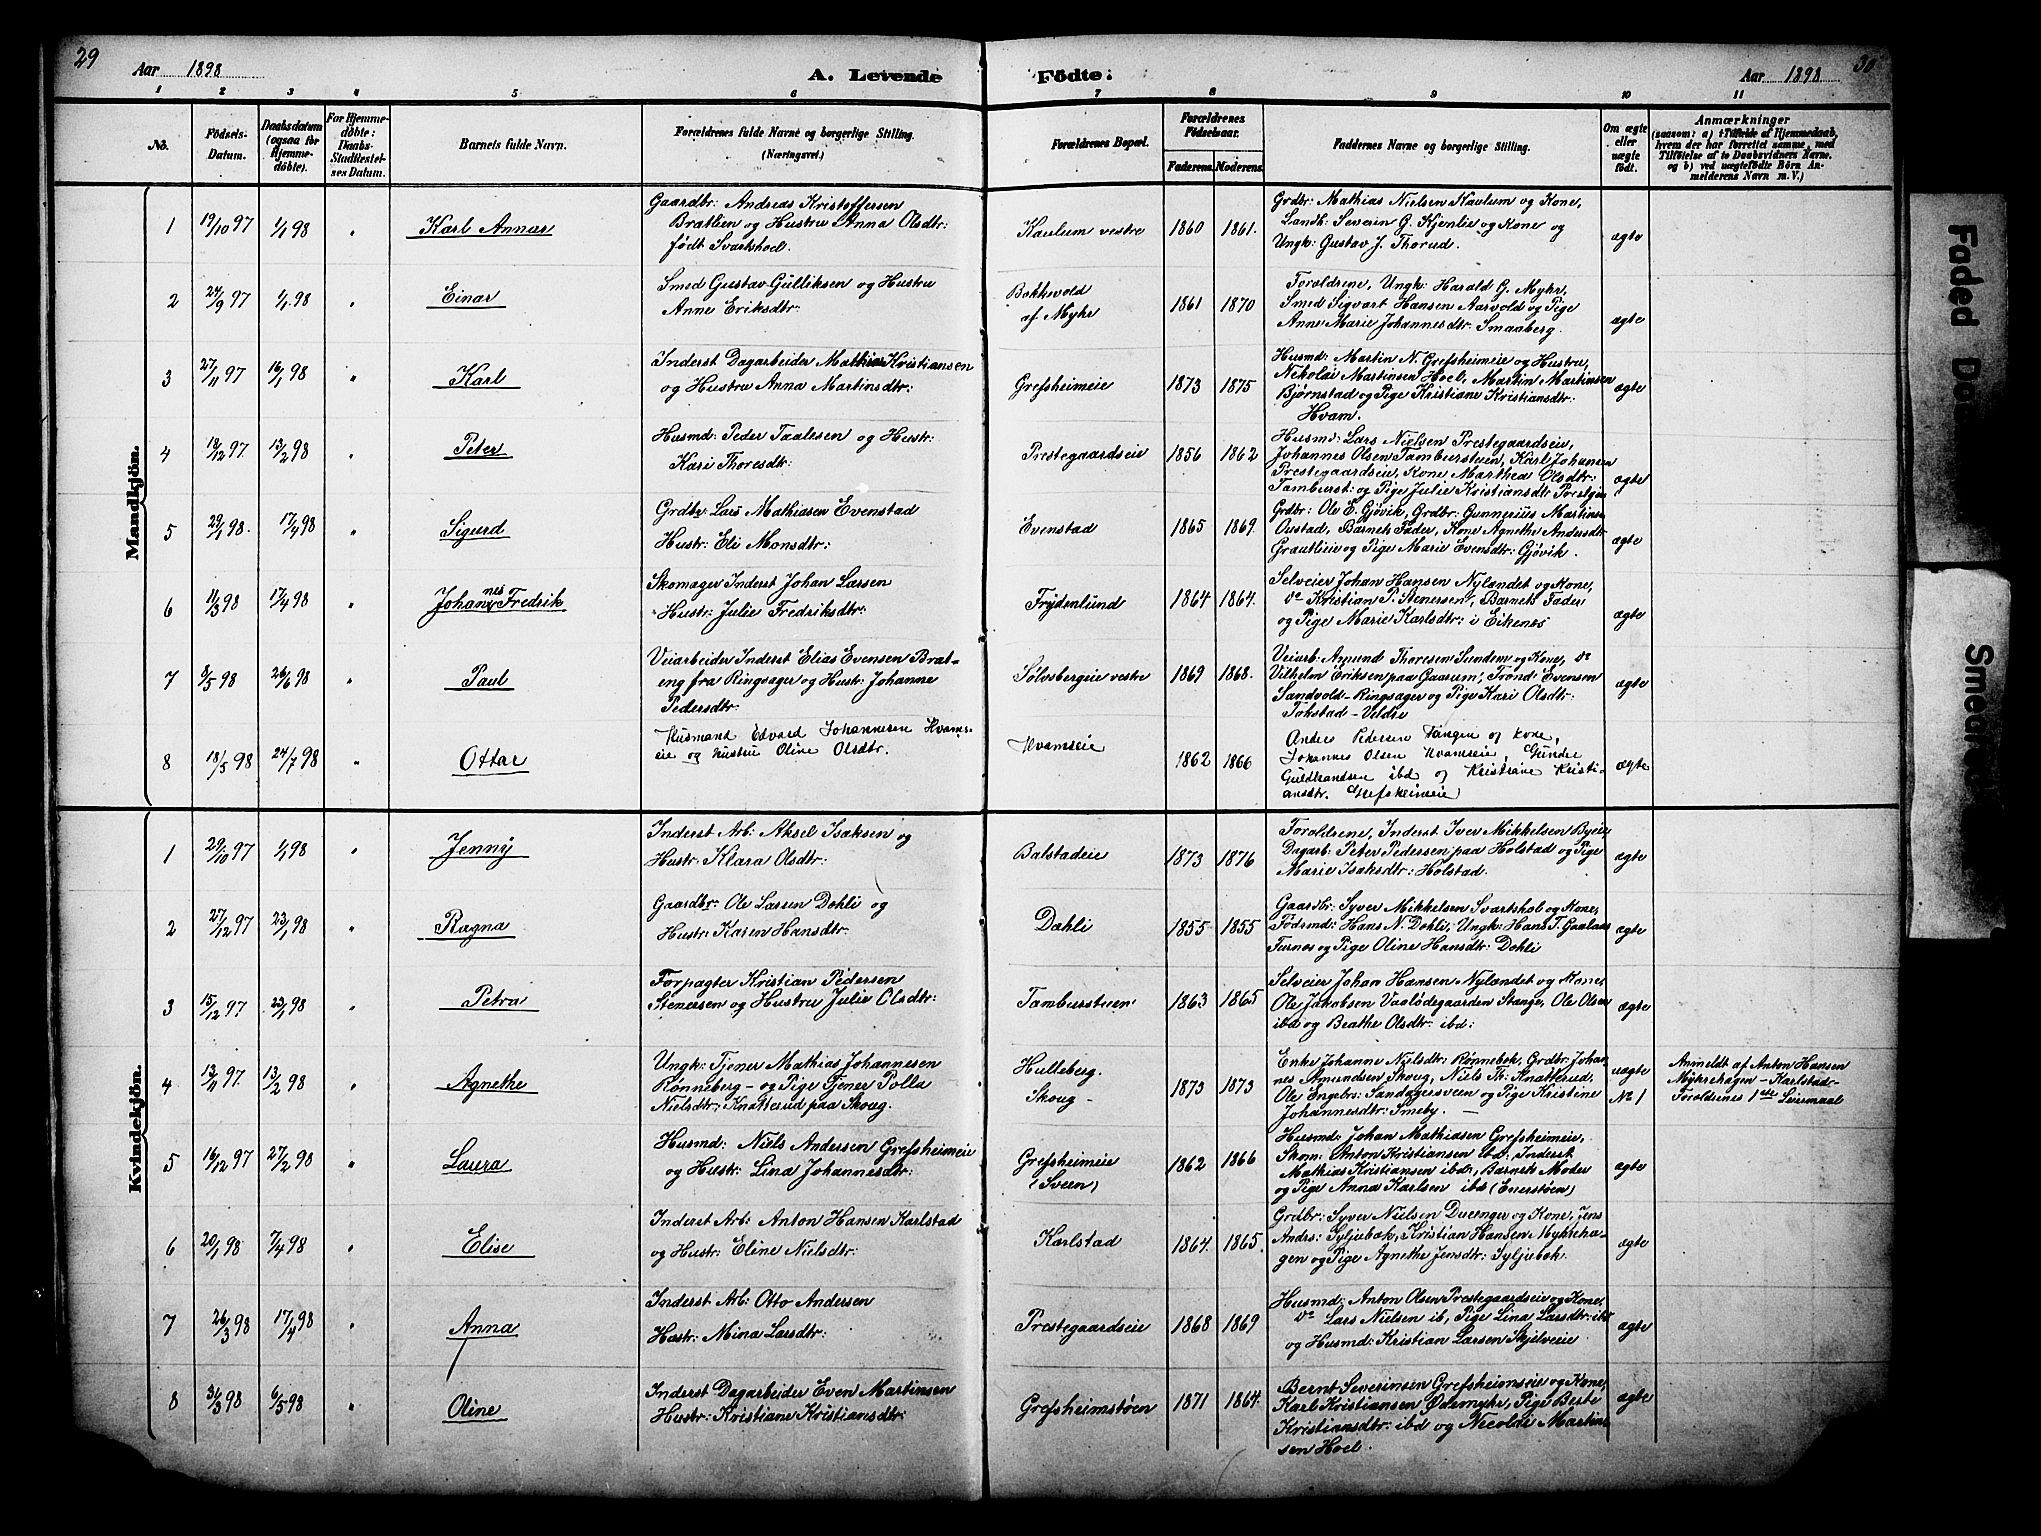 29
Aar 1898
A. Levende
Födte.
Aar 1898
30
1 2 3 4 5 6 7 8 9 10 11
No.
Födsels-
Datum.
Daabsdatum
(ogsaa for
Hjemme-
döbte).
For Hjemme-
döbte:
Daabs-
Stadfæstel-
ses Datum.
Barnets fulde Navn.
Forældrenes fulde Navne og borgerlige Stilling.
(Næringsvei.)
Forældrenes Bopæl.
Forældrenes
Födselsaar.
Faderens. Moderens.
Faddernes Navne og borgerlige Stilling.
Om ægte
eller
uægte
födt.
Anmærkninger
(saasom: a) i Tilfælde af Hjemmedaab,
hvem der har forrettet samme, med
Tilföielse af to Daabsvidners Navne,
og b) ved uægtefödte Börn An-
melderens Navn m. V.)
Mandkjön.
1 19/10 97 1/1 98 " Karl Annar
Gaardbr: Andreas Kristoffersen
Bratlien og Hustru Anna Olsdtr:
født Svartshoel.
Kaulum vestre 1860 1861.
Grdbr: Mathias Nielsen Kaulum og Kone,
Landh: Severin G. Kjenlie og Kone og
Ungk: Gustav J. Thorud.
ægte
2 24/9 97 1/1 98 " Einar
Smed Gustav Gulliksen og Hustru
Anne Eriksdtr:
Bakkvold
af Myhr
1861 1870
Foroldrene, Ungk: Harald G. Myhr,
Smed Sigvart Hansen Aarvold og Pige
Anne Marie Johannesdtr: Smaaberg.
ægte
3 27/11 97 16/1 98 " Karl
Inderst Dagarbeider Mathias Kristiansen
og Hustru Anna Martinsdtr:
Grefsheimeie 1873 1875
Husmd: Martin N. Grefsheimeie og Hustru,
Nikolai Martinsen Hoel, Martin Martinsen
Bjørnstad og Pige Kristiane Kristiansdtr:
Hvam.
ægte
4 12/12 97 13/2 98 " Peter
Husmd: Peder Taalesen og Hustr:
Kari Thoresdtr:
Prestegaardseie 1856 1862
Husmd: Lars Nielsen Prestegaardseie,
Johannes Olsen Tamburstuen, Karl Johansen
Prestegaardseie, Kone Marthea Olsdtr:
Tamburst: og Pige Julie Kristiansdtr Prestgeie
ægte
5 29/1 98. 17/4 98 " Sigurd
Grdbr: Lars Mathiasen Evenstad
Hustr: Eli Monsdtr:
Evenstad 1865 1869.
Grdbr: Ole E. Gjøvik, Grdbr: Gunnerius Martinsen
Oustad, Barnets Fader, Kone Agnethe Andersdtr
Grautlien og Pige Marie Evensdtr: Gjøvik.
ægte
6 11/3 98 17/4 98 " Johannes Fredrik
Skomager Inderst Johan Larsen
Hustr: Julie Fredriksdtr:
Frydenlund 1864 1864.
Selveier Johan Hansen Nylandet og Kone,
do Kristian P. Stenersen, Barnets Fader
og Pige Marie Karlsdtr: i Eikenes
ægte
7 8/5 98 26/6 98 " Paul
Veiarbeider Inderst Elias Evensen Brat-
eng fra Ringsager og Hustr: Johanne
Pedersdtr:
Sølvsbergeie vestre 1869 1868.
Veiarb: Amund Thoresen Sundem og Kone, do
Vilhelm Eriksen paa Gaarum, Trond Evensen
Sandvold - Ringsager og Pige Kari Olsdtr:
Tokstad - Veldre
ægte
8 18/5 98 24/7 98 " Ottar
Husmand Edvard Johannesen Hvams-
eie og hustru Oline Olsdtr.
Hvamseie 1862 1866
Anders Pedersen Tangen og kone,
Johannes Olsen Hvamseie, Gunder
Guldbrandsen ibd og Kristiane Kristi-
ansdtr. Grefsheimeie
ægte
Kvindekjön.
1 29/10 97 1/1 98 " Jenny
Inderst Arb: Aksel Isaksen og
Hustr: Klara Olsdtr:
Balstadeie 1873 1876
Foroldrene, Inderst Iver Mikkelsen Byeie,
Dagarb: Peter Pedersen paa Holstad og Pige
Marie Isaksdtr: Holstad.
ægte
2 27/12 97 23/1 98 " Ragna
Gaardbr: Ole Larsen Dahli og
Hustr: Karen Hansdtr:
Dahli 1855 1855
Gaardbr: Syver Mikkelsen Svartshol og Kone,
Fødsmd: Hans N. Dahli, Ungk: Hans T. Gaalaas
Furnes og Pige Oline Hansdtr: Dahli
ægte
3 15/12 97 23/1 98 " Petra
Forpagter Kristian Pedersen
Stenersen og Hustru Julie Olsdtr:
Tamburstuen 1863 1865
Selveier Johan Hansen Nylandet og Kone,
Ole Jakobsen Vaalødegaarden Stange, Ole Olsen
ibd og Beathe Olsdtr: ibd:
ægte
4 13/11 97. 13/2 98 " Agnethe
Ungk: Tjener Mathias Johannesen
Rønneberg - og Pige Tjener Polla
Nielsdtr: Knatterud paa Skoug.
Hulleberg.
Skoug -
1873 1873
Enke Johanne Nielsdtr: Rønnebek, Grdbr: Johan-
nes Amundsen Skoug, Niels Th: Knatterud,
Ole Engebr: Sandagersveen og Pige Kristine
Johannesdtr: Smeby. -
uægte
No 1
Anmeldt af Anton Hansen
Myhrehagen - Karlstad-
Foroldrenes 1ste Leiermaal
5 16/12 97 27/2 98 " Laura
Husmd: Niels Andersen Grefsheimeie
og Hustr: Lina Johannesdtr:
Grefsheimeie
(Sveen)
1862 1866
Husmd: Johan Mathiasen Grefsheimeie,
Skom: Anton Kristiansen ibd: Inderst
Mathias Kristiansen ibd:, Barnets Moder
og Pige Anna Karlsen ibd (Enerstøen)
ægte
6 20/1 98 7/4 98 " Elise
Inderst Arb: Anton Hansen Karlstad
og Hustr: Eline Nielsdtr:
Karlstad 1864. 1865.
Grdbr: Syver Nielsen Ducenger og Kone, Jens
Andrs: Syljubæk, Kristian Hansen Myhreha-
gen og Pige Agnethe Jensdtr: Syljubæk.
ægte
7 26/3 98 17/4 98 " Anna
Inderst Arb: Otto Andersen
Hustr: Mina Larsdtr:
Prestegaardseie 1868 1869
Husmd: Anton Olsen Prestegaardseie og Kone,
do Lars Nielsen ib, Pige Lina Larsdtr: ibd
og Husmd: Kristian Larsen Skjelveie
ægte
8 31/3 98 6/5 98 " Oline
Inderst Dagarbeider Even Martinsen
Hustr: Kristiane Kristiansdtr:
Grefsheimstøen 1871 1864.
Bernt Severinsen Grefsheimseie og Kone,
Karl Kristiansen Ødemyhr, Pige Beate
Kristiansdtr: ibd og Nicolai Martin-
sen Hoel.
ægte
Faded